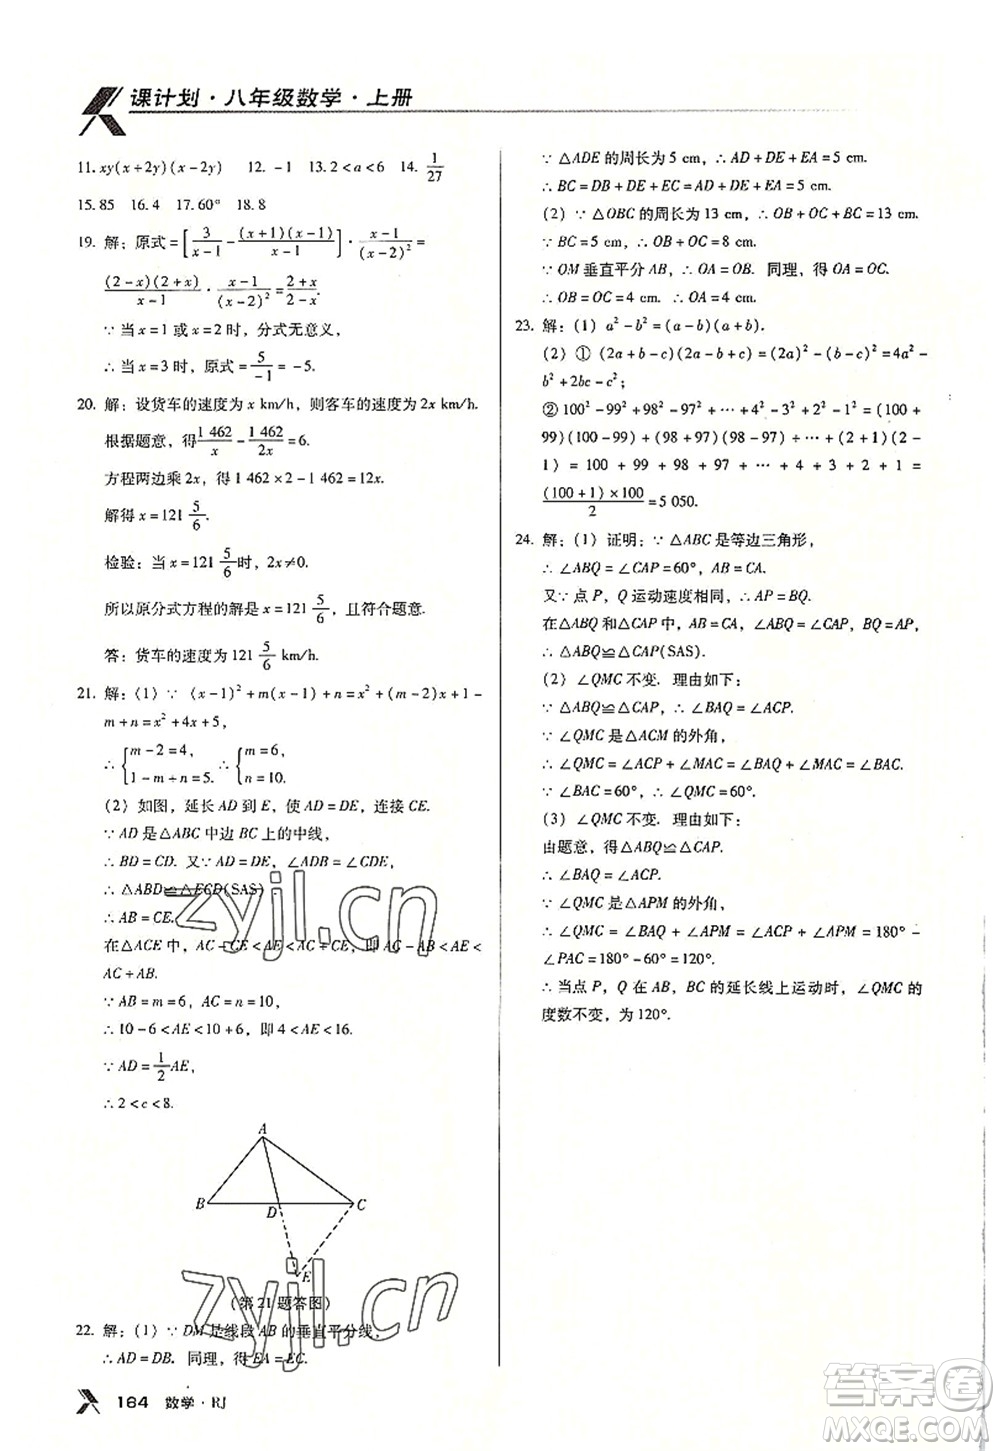 课计划·八年级数学·上册
11. xy(x+2y)(x-2y)  12. -1  13. 2<a<6  14. 1/27
15. 85  16. 4  17. 60°  18. 8
19. 解：原式=[3/(x-1) - (x+1)(x-1)/(x-1)]·(x-1)/(x-2)²=
(2-x)(2+x)/(x-1)·(x-1)/(x-2)²=(2+x)/(2-x).
∵当x=1或x=2时，分式无意义，
∴当x=3时，原式=5/(-1)=-5.
20. 解：设货车的速度为x km/h，则客车的速度为2x km/h.
根据题意，得1 462/x - 1 462/2x=6.
方程两边乘2x，得1 462×2-1 462=12x.
解得x=121 5/6.
检验：当x=121 5/6时，2x≠0.
所以原分式方程的解是x=121 5/6，且符合题意.
答：货车的速度为121 5/6 km/h.
21. 解：(1)∵(x-1)²+m(x-1)+n=x²+(m-2)x+1-
m+n=x²+4x+5，
∴{m-2=4, 1-m+n=5. ∴{m=6, n=10.
(2)如图，延长AD到E，使AD=DE，连接CE.
∵AD是△ABC中边BC上的中线，
∴BD=CD. 又∵AD=DE，∠ADB=∠CDE，
∴△ABD≌△ECD(SAS)
∴AB=CE.
在△ACE中，AC-CE<AE<AC+CE，即AC-AB<AE<
AC+AB.
∵AB=m=6，AC=n=10，
∴10-6<AE<10+6，即4<AE<16.
∵AD=1/2AE，
∴2<c<8.
A
B D C
E
(第21题答图)
22. 解：(1)∵DM是线段AB的垂直平分线，
∴AD=DB. 同理，得EA=EC.
184 数学·RJ
∵△ADE的周长为5 cm，∴AD+DE+EA=5 cm.
∴BC=DB+DE+EC=AD+DE+EA=5 cm.
(2)∵△OBC的周长为13 cm，∴OB+OC+BC=13 cm.
∵BC=5 cm，∴OB+OC=8 cm.
∵OM垂直平分AB，∴OA=OB. 同理，得OA=OC.
∴OB=OC=4 cm. ∴OA=OB=4 cm.
23. 解：(1)a²-b²=(a-b)(a+b).
(2)①(2a+b-c)(2a-b+c)=(2a)²-(b-c)²=4a²-
b²+2bc-c²；
②100²-99²+98²-97²+…+4²-3²+2²-1²=(100+
99)(100-99)+(98+97)(98-97)+…+(2+1)(2-
1)=100+99+98+97+…+4+3+2+1=
(100+1)×100/2=5 050.
24. 解：(1)证明：∵△ABC是等边三角形，
∴∠ABQ=∠CAP=60°，AB=CA.
又∵点P，Q运动速度相同，∴AP=BQ.
在△ABQ和△CAP中，AB=CA，∠ABQ=∠CAP，BQ=AP，
∴△ABQ≌△CAP(SAS).
(2)∠QMC不变. 理由如下：
∵△ABQ≌△CAP，∴∠BAQ=∠ACP.
∵∠QMC是△ACM的外角，
∴∠QMC=∠ACP+∠MAC=∠BAQ+∠MAC=∠BAC.
∵∠BAC=60°，∴∠QMC=60°.
(3)∠QMC不变. 理由如下：
由题意，得△ABQ≌△CAP.
∴∠BAQ=∠ACP.
∵∠QMC是△APM的外角，
∴∠QMC=∠BAQ+∠APM=∠ACP+∠APM=180°-
∠PAC=180°-60°=120°.
∴当点P，Q在AB，BC的延长线上运动时，∠QMC的
度数不变，为120°.
zyjl.cn
zyjl.cn
答案圈
MXQE.COM